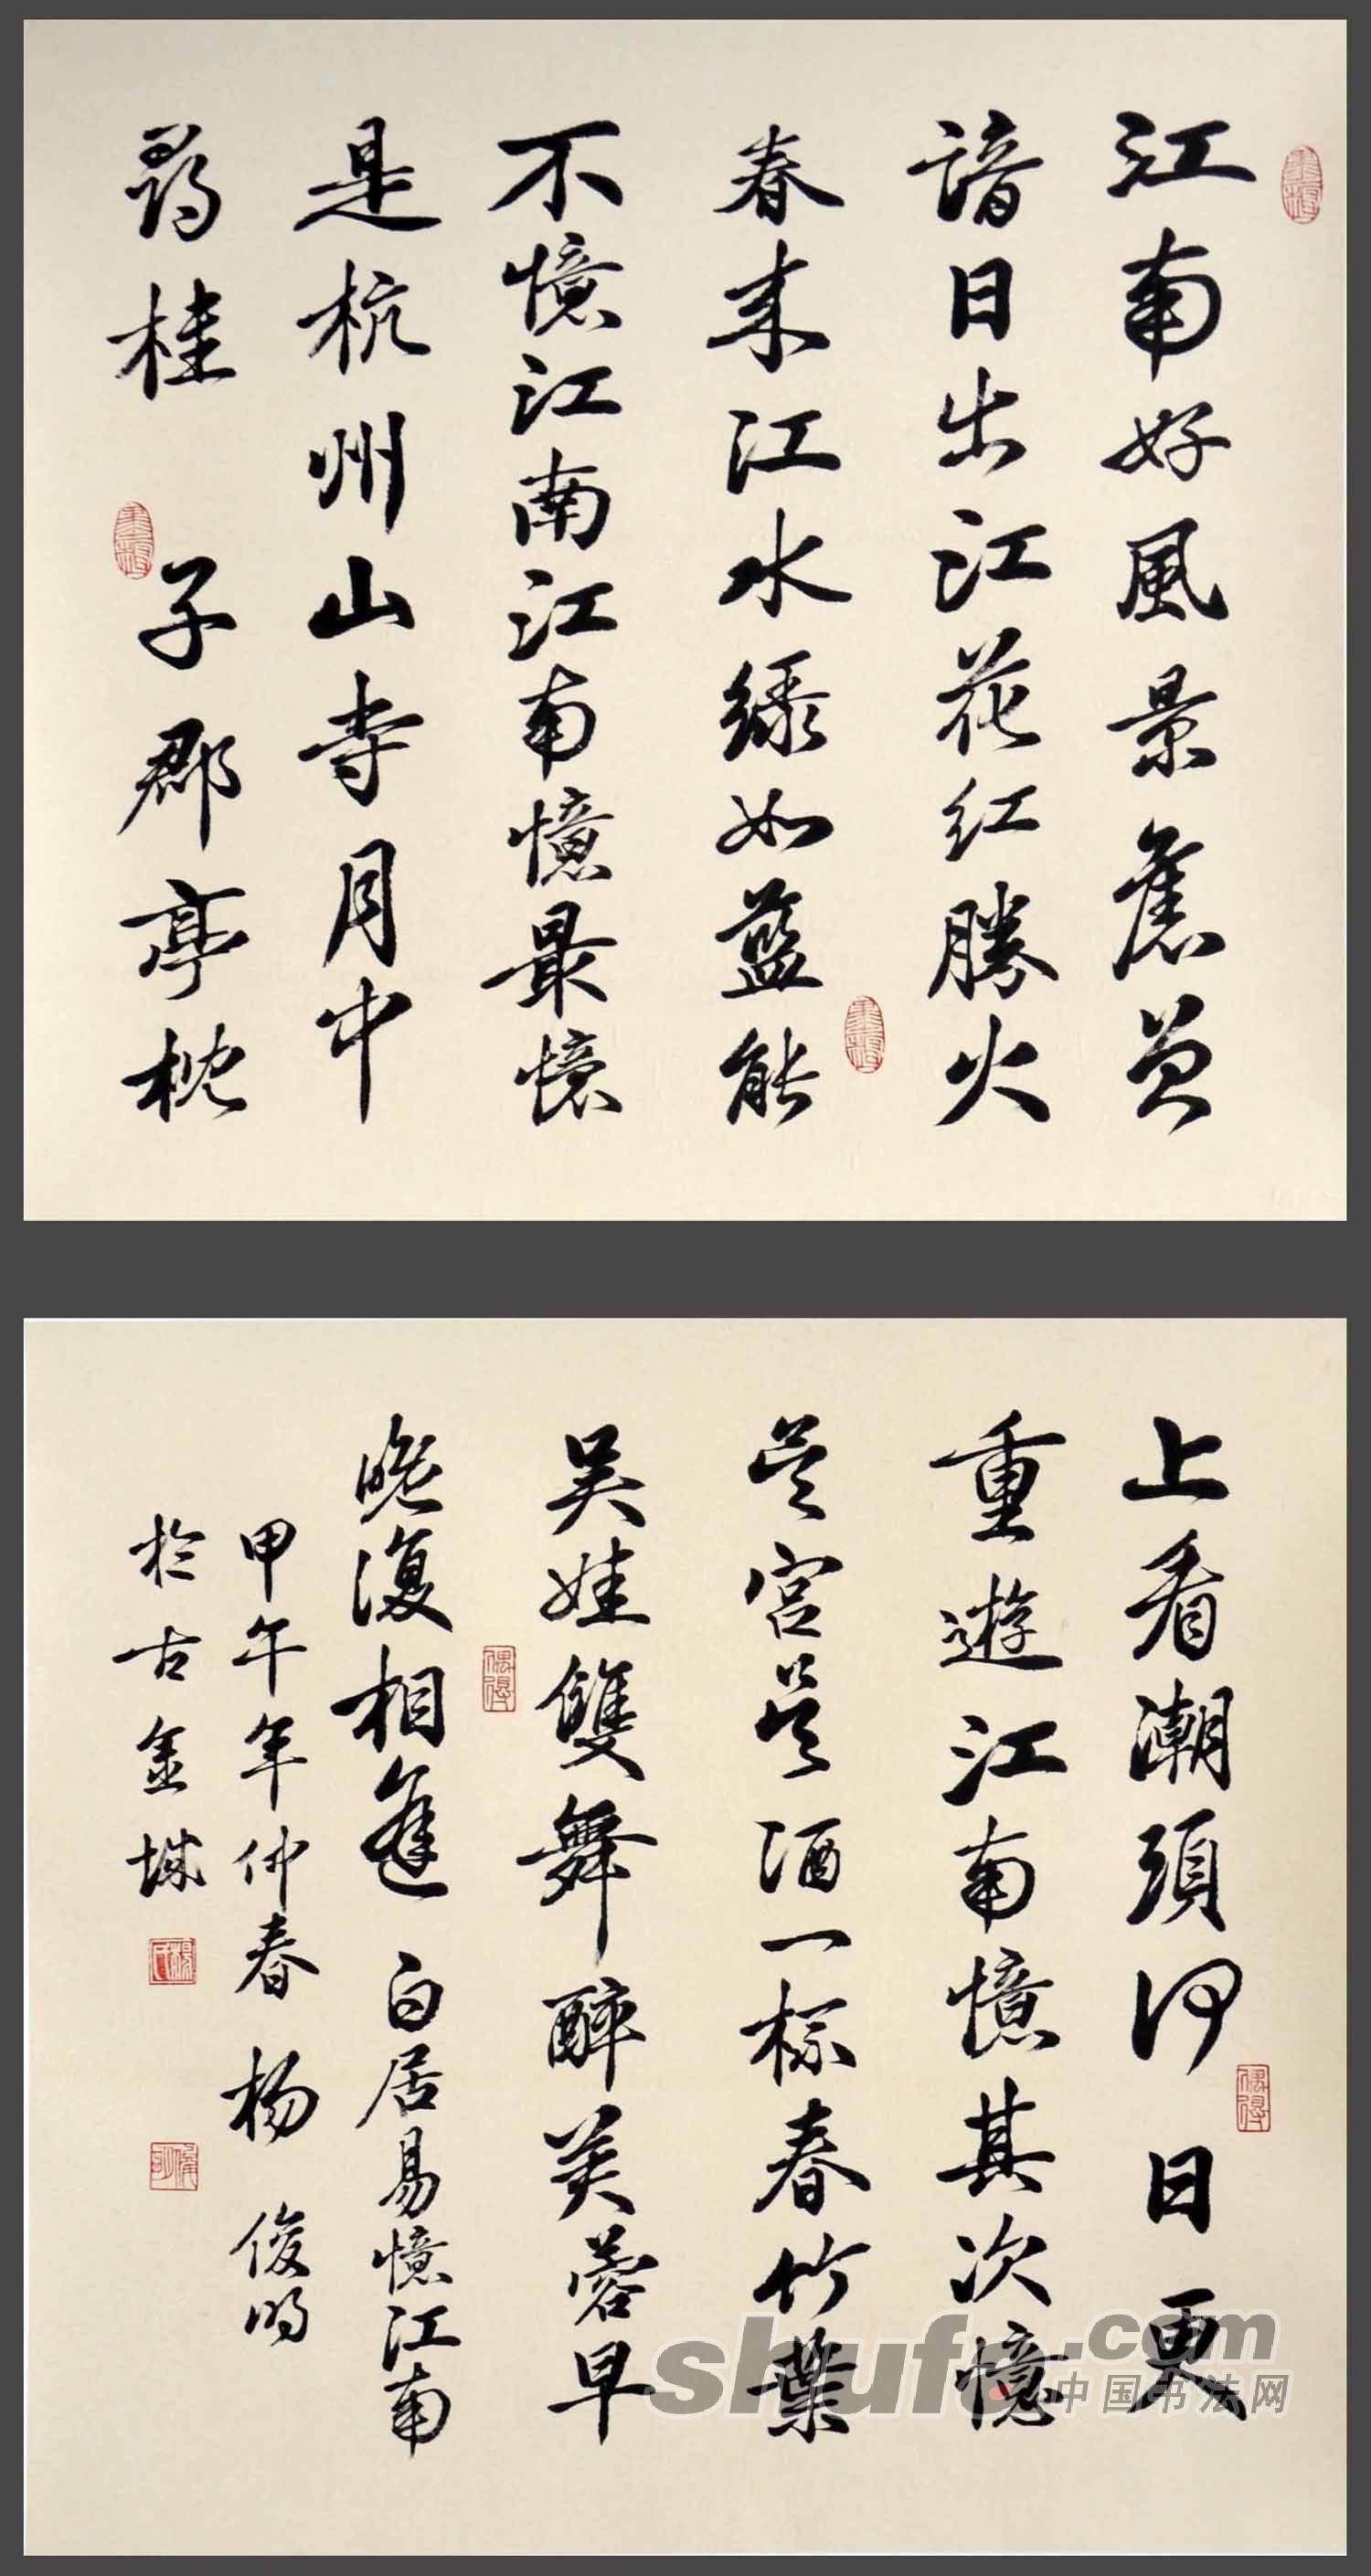 江南好風景舊曾
諳日出江花紅勝火
春来江水緑如藍能
不憶江南江南憶最憶
是杭州山寺月中
尋桂子郡亭枕
上看潮頭何日更
重遊江南憶其次憶
吴宫吴酒一桮春竹葉
吴娃雙舞醉芙蓉早
晚復相逢 白居易憶江南
甲午年仲春 杨俊明
於古金城
偶得
偶得
楊氏
shufa.com
中国书法网